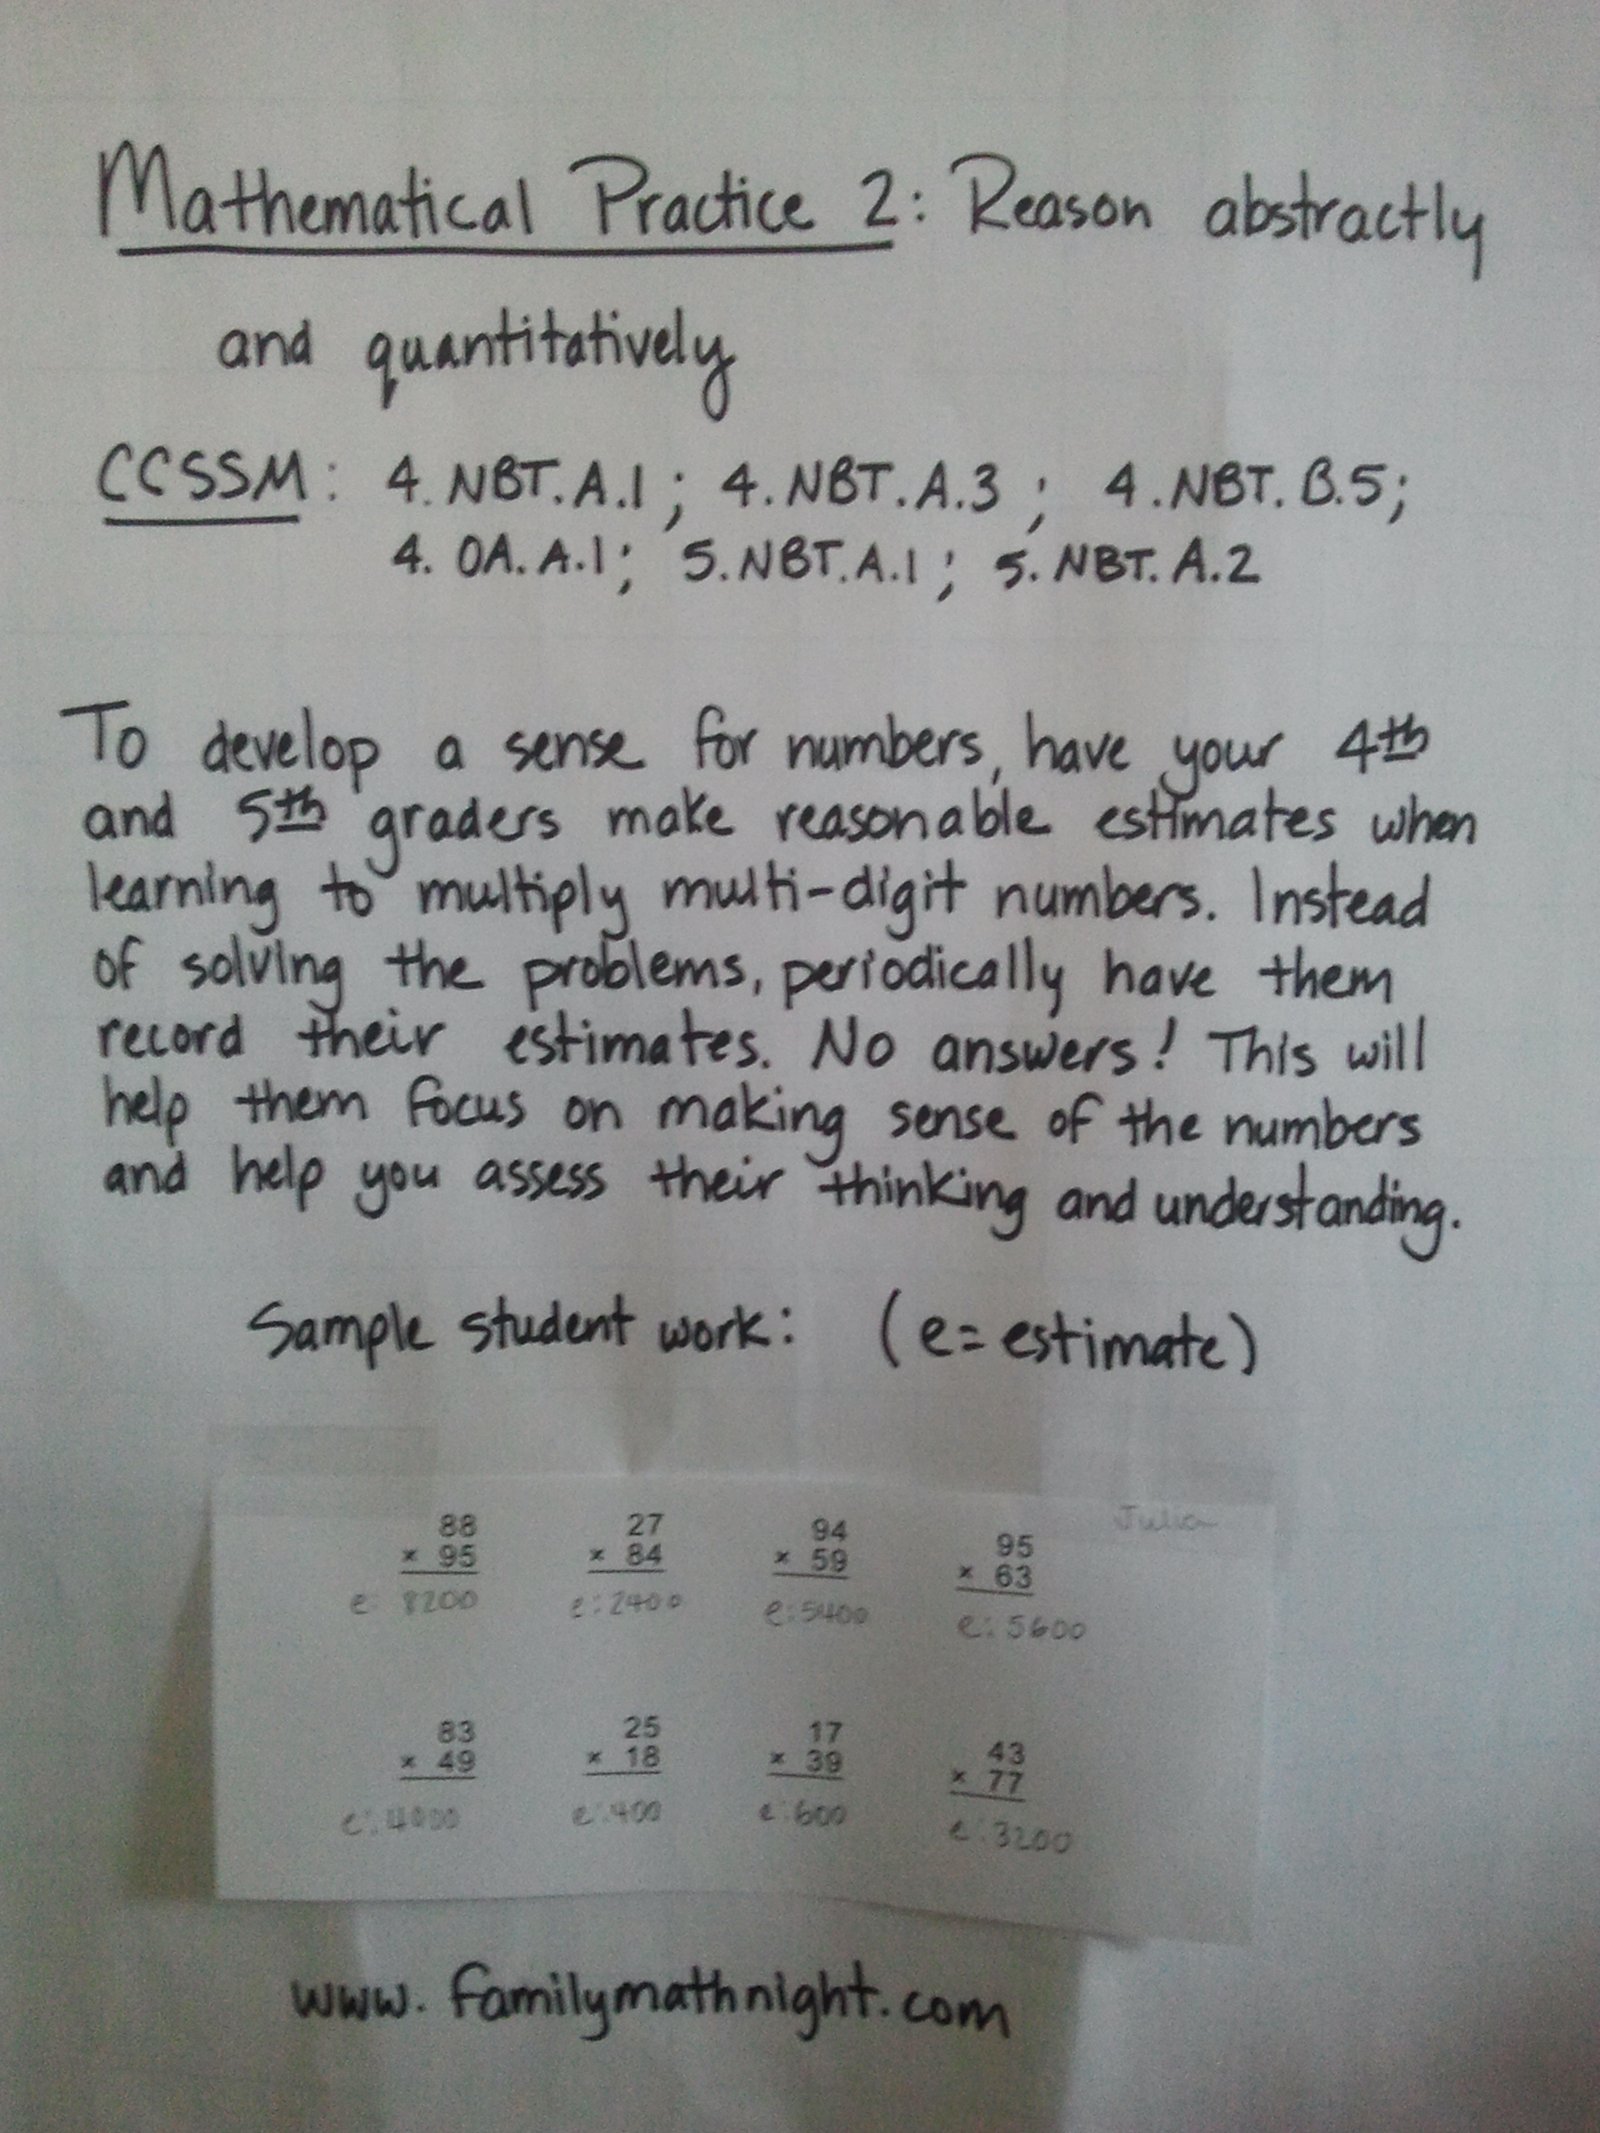 Mathematical Practice 2: Reason abstractly
and quantitatively
CCSSM: 4.NBT.A.1; 4.NBT.A.3; 4.NBT.B.5;
4.OA.A.1; 5.NBT.A.1; 5.NBT.A.2
To develop a sense for numbers, have your 4th
and 5th graders make reasonable estimates when
learning to multiply multi-digit numbers. Instead
of solving the problems, periodically have them
record their estimates. No answers! This will
help them focus on making sense of the numbers
and help you assess their thinking and understanding.
Sample student work: (e=estimate)
Julia
88 27 94 95
× 95 × 84 × 59 × 63
e: 8200 e:2400 e:5400 e:5600
83 25 17 43
× 49 × 18 × 39 × 77
e:4000 e:400 e:600 e:3200
www.familymathnight.com